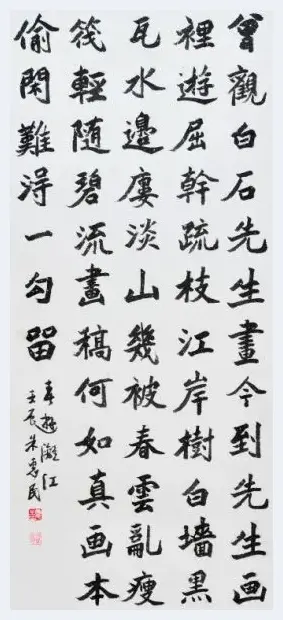 曾觀白石先生畫今到先生画
裡遊屈幹疏枝江岸樹白墙黑
瓦水邊廔淡山幾被春雲亂瘦
筏輕随碧流畫稿何如真画本
偷閑難浔一勾留
春遊灕江
壬辰朱惠民